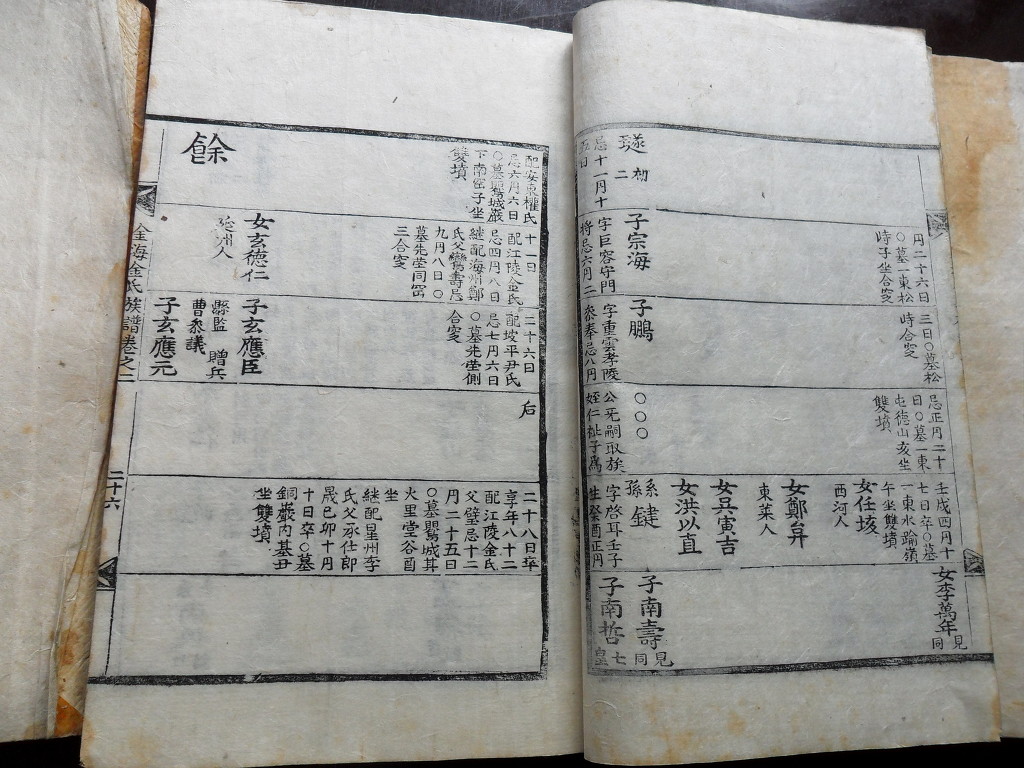 璲
初二
忌十一月十
円二十六日
〇墓一東松
時子坐合窆
子宗海
字巨容守門
将忌六円二
三日〇墓松
時合窆
子鵬
字重雲孝陵
叅奉忌八円
忌正円二十
日〇墓一東
屯徳山亥坐
雙墳
〇〇〇
公无嗣取族
姪仁祉子爲
壬戌四円十
七日卒〇墓
一東水踰嶺
午坐雙墳
女任垓
西河人
女鄭弁
東萊人
女吳寅吉
女洪以直
系孫鍵
字啓耳壬子
生癸酉正円
女李萬年見同
子南壽見同
子南哲七皇
配安東權氏
忌六月六日
〇墓鷖城巖
下南宻子坐
雙墳
餘
十一日
配江陵金氏
忌四月八日
継配海州鄭
氏父鸞壽忌
九月八日〇
墓先塋同岡
三合窆
女玄德仁
延州人
二十六日
配坡平尹氏
忌七月六日
〇墓先塋側
合窆
子玄應臣
縣監 贈兵
曹叅議
子玄應元
后
二十八日卒
享年八十二
配江陵金氏
父璧忌十二
月二十五日
〇墓鷖城其
火里堂谷酉
坐
継配星州李
氏父承仕郎
晟己卯十円
十日卒〇墓
銅巖内基丑
坐雙墳
金海金氏 族譜卷之二 二十六